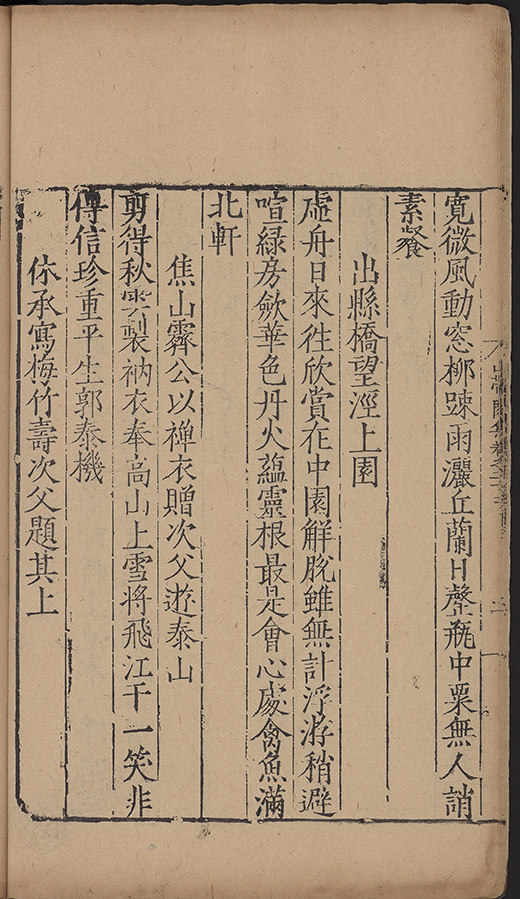 寛微風動窓柳踈雨灑丘蘭日罄瓶中粟無人誚
素餐
出縣橋望涇上園
虛舟日來徃欣賞在中園解脫雖無計浮游稍避
喧緑房斂華色丹火蘊靈根最是會心處禽魚滿
北軒
焦山霽公以禅衣贈次父遊泰山
剪得秋雲製衲衣奉高山上雪将飛江干一笑非
傳信珍重平生郭泰機
休承寫梅竹壽次父題其上